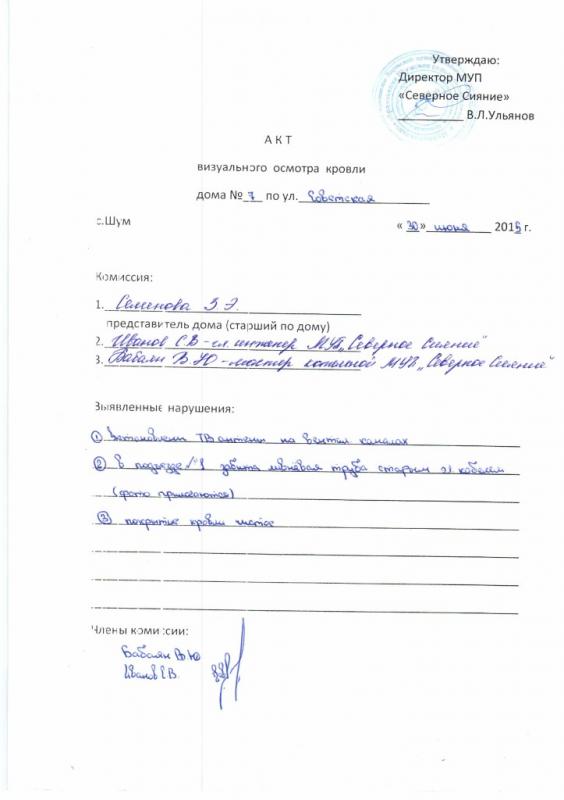 Утверждаю:
Директор МУП
«Северное Сияние»
__________ В.Л.Ульянов
А К Т
визуального осмотра кровли
дома № 7 по ул. Советская
с.Шум
« 30 » июня 2015 г.
Комиссия:
1. Семенова З.Э.
представитель дома (старший по дому)
2. Иванов С.В - гл. инженер МУП „Северное Сияние"
3. Бабаян В.Ю - мастер котельной МУП „Северное Сияние"
Выявленные нарушения:
① Установлены ТВ антенны на вентил каналах
② в подъезде №1 забита ливневая труба старым эл. кабелем
(фото прилагаются)
③ покрытие кровли чистое
Члены комиссии:
Бабаян В.Ю
Иванов С.В.